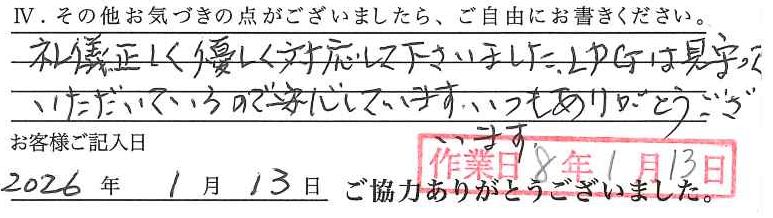 Ⅳ．その他お気づきの点がございましたら、ご自由にお書きください。
礼儀正しく優しく対応して下さいました、LPGは見守って
いただいているので安心しています。いつもありがとうござ
います。
お客様ご記入日
作業日 8年1月13日
2026 年 1 月 13 日 ご協力ありがとうございました。